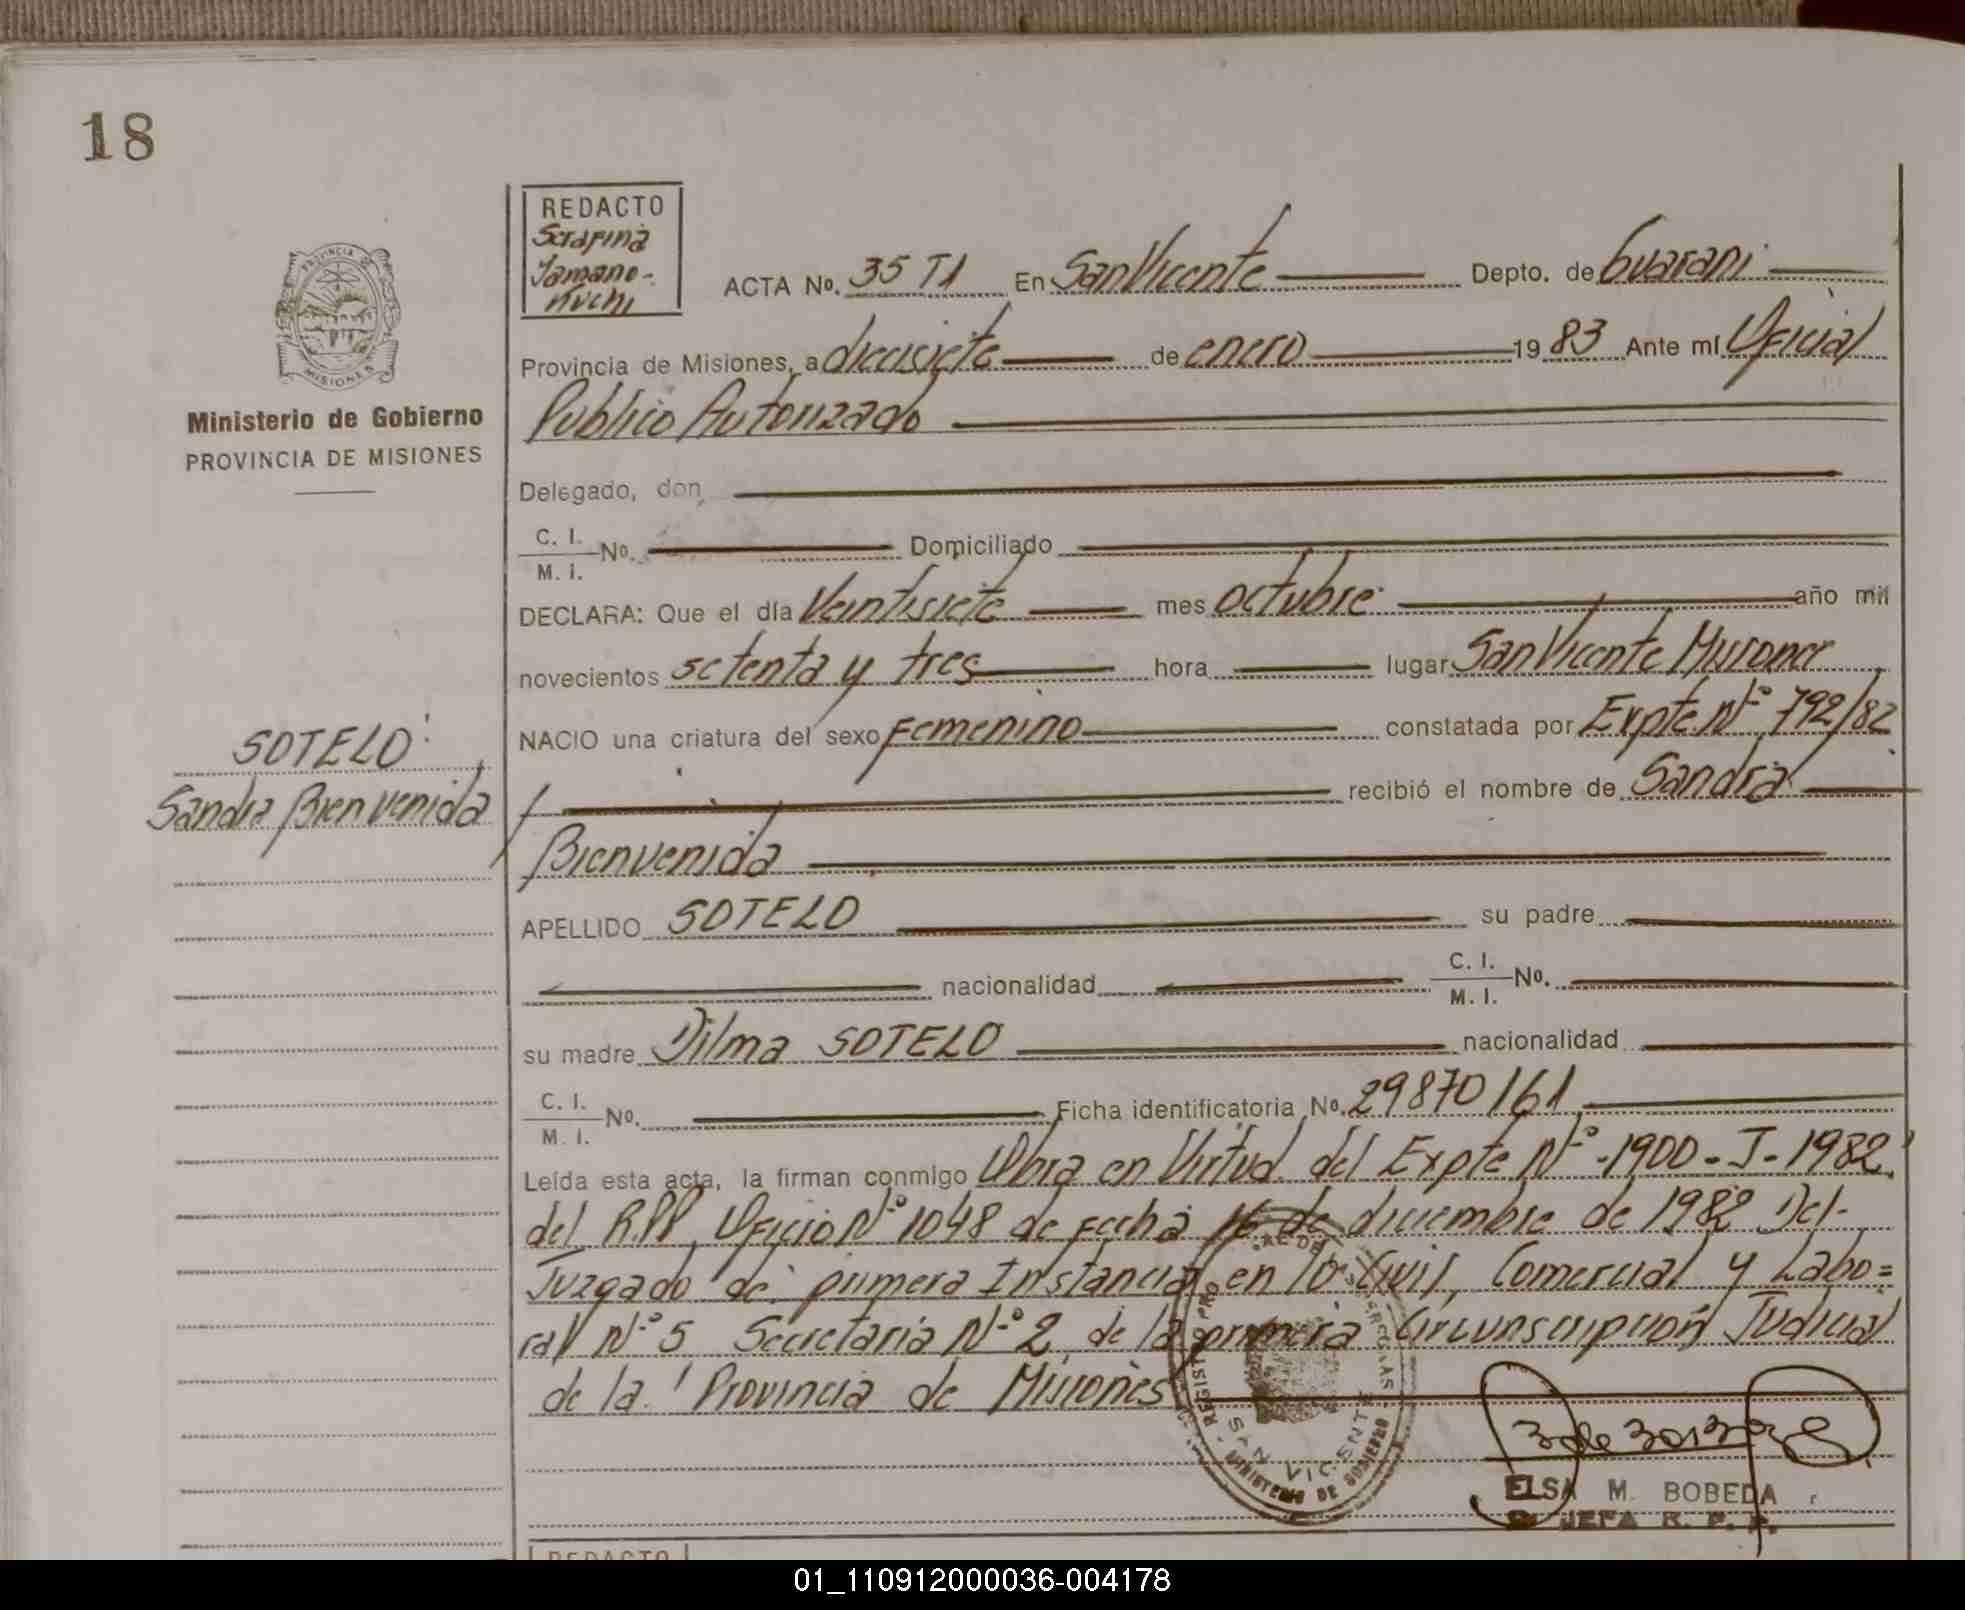 18
REDACTO
Serafina
Yamano-
Kuchi
PROVINCIA DE
MISIONES
Ministerio de Gobierno
PROVINCIA DE MISIONES
ACTA No. 35 T1 En San Vicente Depto. de Guarani
Provincia de Misiones, a diecisiete de enero 1983 Ante mí Oficial
Publico Autorizado
Delegado, don
C. I.
M. I. No. Domiciliado
DECLARA: Que el día Veintisiete mes octubre año mil
novecientos setenta y tres hora lugar San Vicente Misiones
NACIO una criatura del sexo Femenino constatada por Expte. Nº 792/82
recibió el nombre de Sandra
Bienvenida
APELLIDO SOTELO su padre
nacionalidad C. I.
M. I. No.
su madre Dilma SOTELO nacionalidad
C. I.
M. I. No. Ficha identificatoria No. 29870161
Leída esta acta, la firman conmigo Obra en Virtud del Expte Nº -1900-J-1982
del R.PP, Oficio Nº 1048 de Fecha 16 de diciembre de 1982 Del-
Juzgado de primera Instancia en lo Civil, Comercial y Labo=
ral Nº 5 Secretaria Nº 2 de la primera Circunscripción Judicial
de la Provincia de Misiones
SOTELO
Sandra Bienvenida
SAN VICENTE
MINISTERIO DE GOBIERNO
ELSA M. BOBEDA
JEFA R. P. P.
REDACTO
01_110912000036-004178